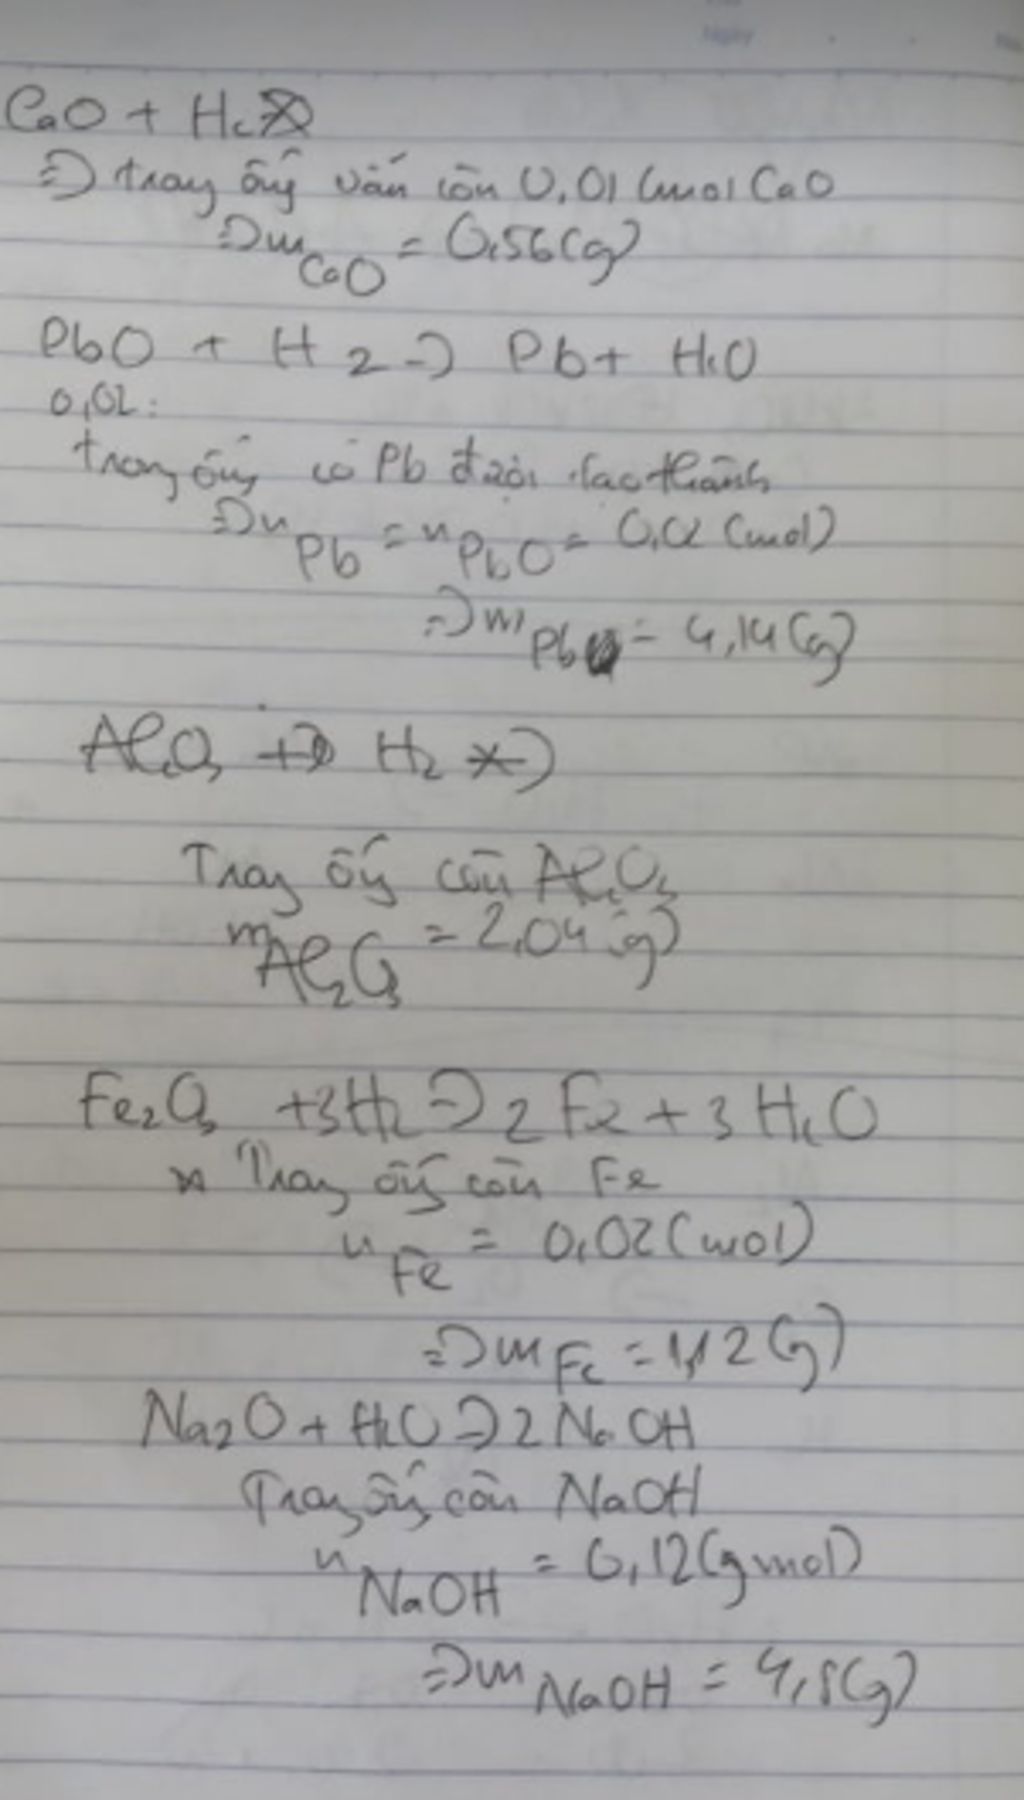 Ngày
CaO + H₂
=> trong ống vẫn còn 0,01 (mol CaO
=> m CaO = 0,56 (g)
PbO + H2 => Pb + H₂O
0,02:
trong ống có Pb được tạo thành
=> n Pb = n PbO = 0,02 (mol)
=> m Pb = 4,14 (g)
Al₂O₃ + H₂
Trong ống còn Al₂O₃
m Al₂O₃ = 2,04 (g)
Fe₂O₃ + 3H₂ => 2Fe + 3H₂O
Trong ống còn Fe
n Fe = 0,02 (mol)
=> m Fe = 1,12 (g)
Na₂O + H₂O => 2NaOH
Trong ống còn NaOH
n NaOH = 0,12 (gmol)
=> m NaOH = 4,8 (g)